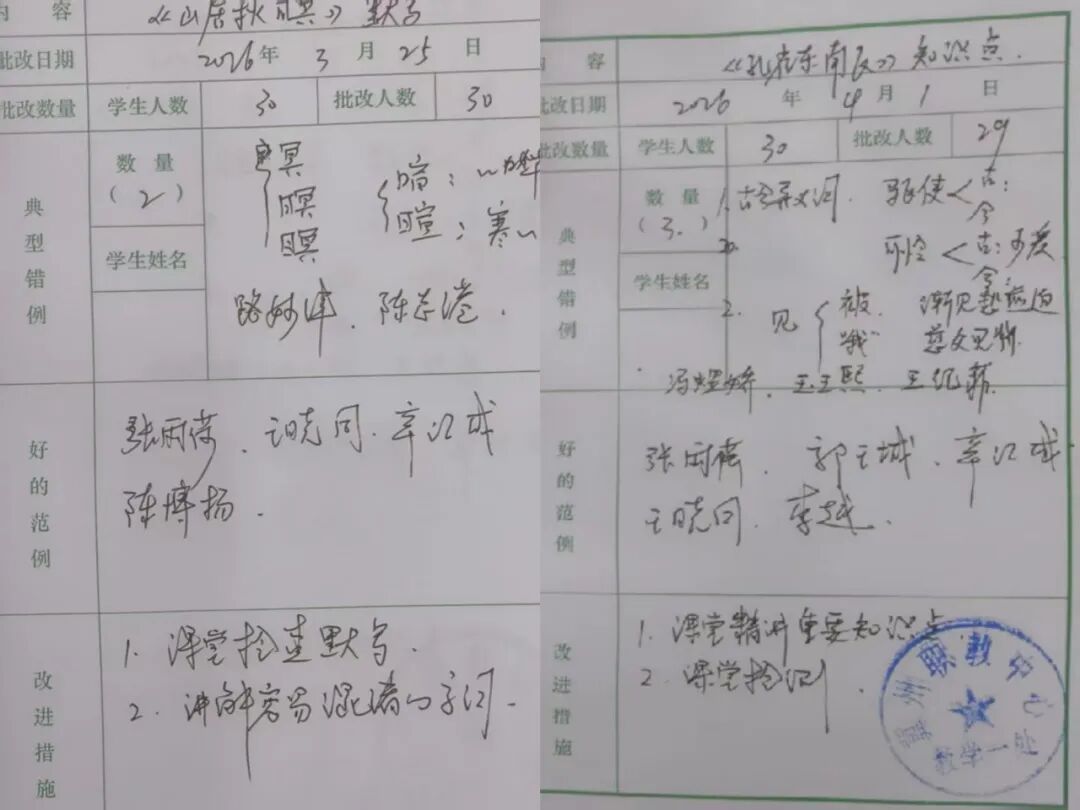 内 容 《山居秋暝》默写
批改日期 2026 年 3 月 25 日
批改数量 学生人数 30 批改人数 30
典型错例
数 量
(2)
学生姓名
冥
瞑
暝
喧:
暄:寒~
路妙 陈志港.
好的范例
张雨荷. 王晓同. 辛汉成
陈博扬.
改进措施
1. 课堂检查默写.
2. 讲解容易混淆的字词.
内 容 《孔雀东南飞》知识点.
批改日期 2026 年 4 月 1 日
批改数量 学生人数 30 批改人数 29
典型错例
数 量
(3.)
学生姓名
1. 古今异义词. 驱使<古:
今
可怜<古:可爱
今
2. 见{被. 渐见愁煎迫
"我"
王玉熙. 王
好的范例
张雨荷. 郭子城. 辛汉成
王晓同. 李越.
改进措施
1. 课堂精讲重要知识点.
2. 课堂检测.
冀州职教中心
教学一处